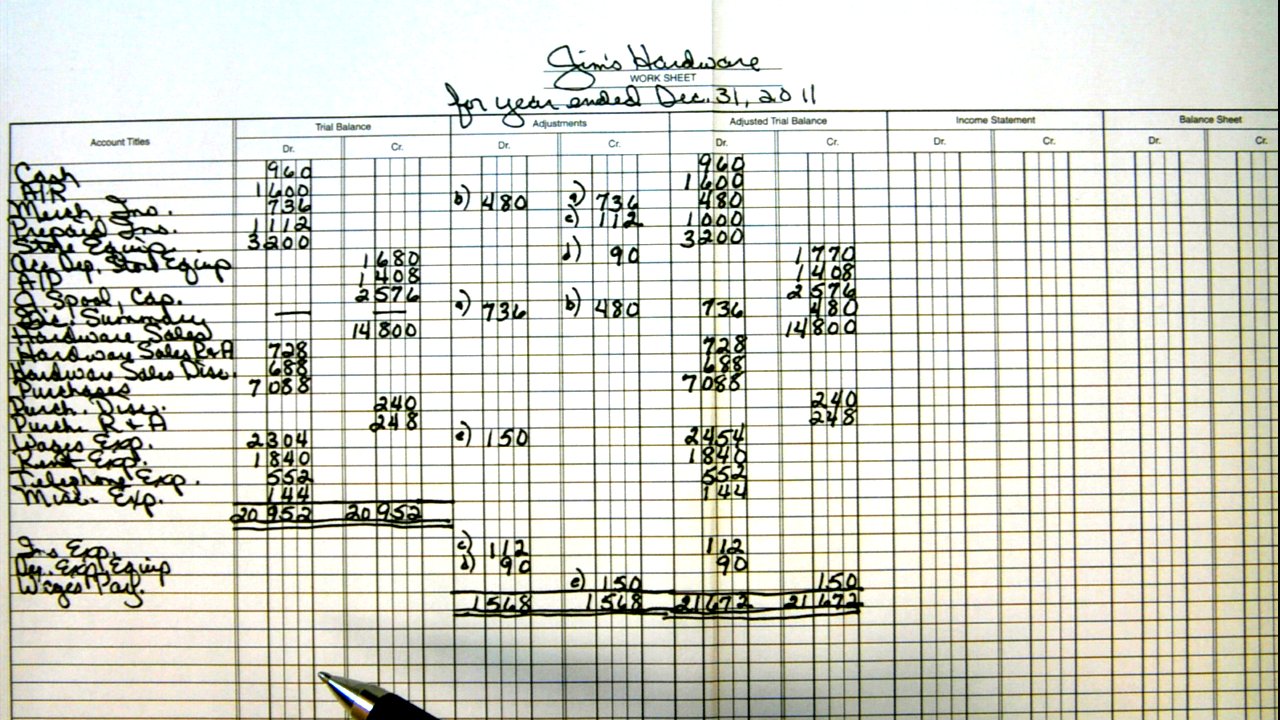 Jim's Hardware
WORK SHEET
for year ended Dec. 31, 2011
Account Titles Trial Balance Adjustments Adjusted Trial Balance Income Statement Balance Sheet
Dr. Cr. Dr. Cr. Dr. Cr. Dr. Cr. Dr. Cr.
Cash 960 960
A/R 1600 1600
Merch. Inv. 736 b) 480 a) 736 480
Prepaid Ins. 1112 c) 112 1000
Store Equip. 3200 3200
Acc. Dep. Store Equip 1680 d) 90 1770
A/P 1408 1408
J. Spool, Cap. 2576 2576
Inc. Summary — — a) 736 b) 480 736 480
Hardware Sales 14800 14800
Hardware Sales R+A 728 728
Hardware Sales Disc. 688 688
Purchases 7088 7088
Purch. Disc. 240 240
Purch. R & A 248 248
Wages Exp. 2304 e) 150 2454
Rent Exp. 1840 1840
Telephone Exp. 552 552
Misc. Exp. 144 144
20952 20952
Ins Exp. c) 112 112
Dep. Exp. Equip d) 90 90
Wages Pay. e) 150 150
1568 1568 21672 21672